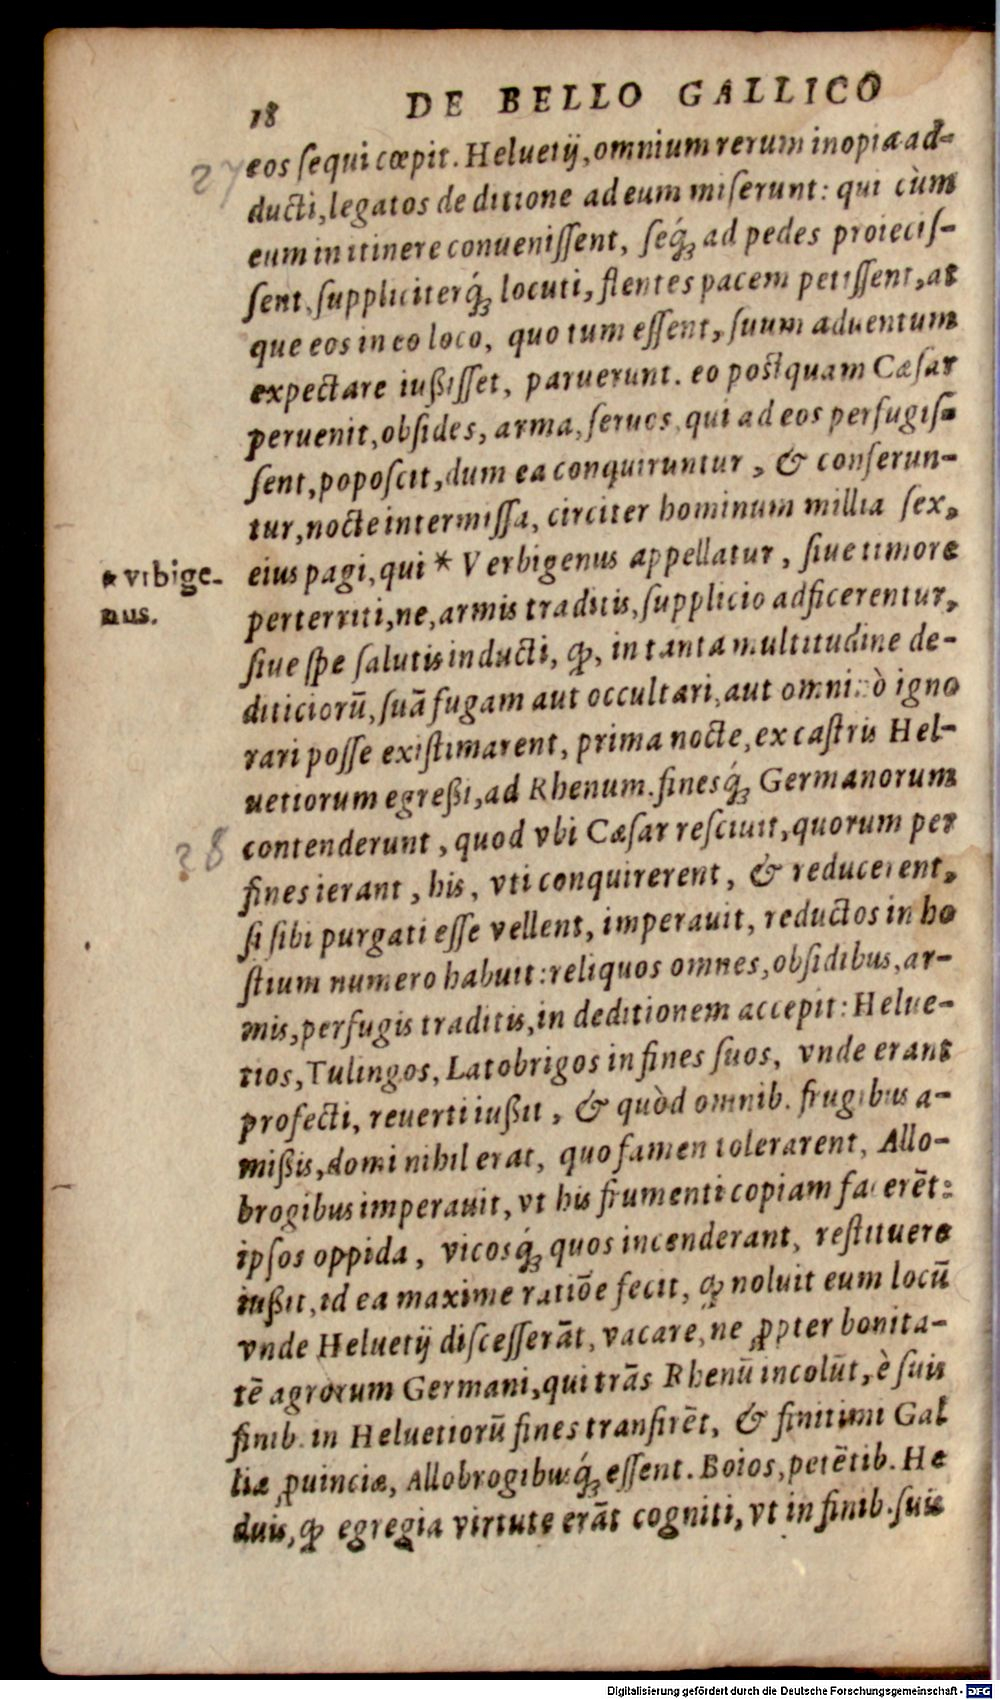 18 DE BELLO GALLICO
27 eos ſequi cœpit. Heluetij, omnium rerum inopia ad-
ducti, legatos de ditione ad eum miſerunt: qui cùm
eum in itinere conueniſſent, ſeq́; ad pedes proieciſ-
ſent, ſuppliciterq́; locuti, flentes pacem petiſſent, at
que eos in eo loco, quo tum eſſent, ſuum aduentum
expectare iußiſſet, paruerunt. eo poſtquam Cæſar
peruenit, obſides, arma, ſeruos, qui ad eos perfugiſ-
ſent, popoſcit, dum ea conquiruntur, & conferun-
tur, nocte intermiſſa, circiter hominum millia ſex,
* vrbige-
nus.
eius pagi, qui * Verbigenus appellatur, ſiue timore
perterriti, ne, armis traditis, ſupplicio adficerentur,
ſiue ſpe ſalutis inducti, ꝙ, in tanta multitudine de-
diticiorũ, ſuã fugam aut occultari, aut omninò igno
rari poſſe exiſtimarent, prima nocte, ex caſtris Hel-
uetiorum egreßi, ad Rhenum. finesq́; Germanorum
28 contenderunt, quod vbi Cæſar reſciuit, quorum per
fines ierant, his, vti conquirerent, & reducerent,
ſi ſibi purgati eſſe vellent, imperauit, reductos in ho
ſtium numero habuit: reliquos omnes, obſidibus, ar-
mis, perfugis traditis, in deditionem accepit: Helue-
tios, Tulingos, Latobrigos in fines ſuos, vnde erant
profecti, reuerti iußit, & quòd omnib. frugibus a-
mißis, domi nihil erat, quo famen tolerarent, Allo-
brogibus imperauit, vt his frumenti copiam facerẽt:
ipſos oppida, vicosq́; quos incenderant, reſtituere
iußit, id ea maxime ratiõe fecit, ꝙ noluit eum locũ
vnde Heluetij diſceſſerãt, vacare, ne ꝓpter bonita-
tẽ agrorum Germani, qui trãs Rhenũ incolũt, è ſuis
finib. in Heluetiorũ fines tranſirẽt, & finitimi Gal
liæ ꝓuinciæ, Allobrogibusq́; eſſent. Boios, petẽtib. He
duis, ꝙ egregia virtute erãt cogniti, vt in finib. ſuis
Digitalisierung gefördert durch die Deutsche Forschungsgemeinschaft - DFG